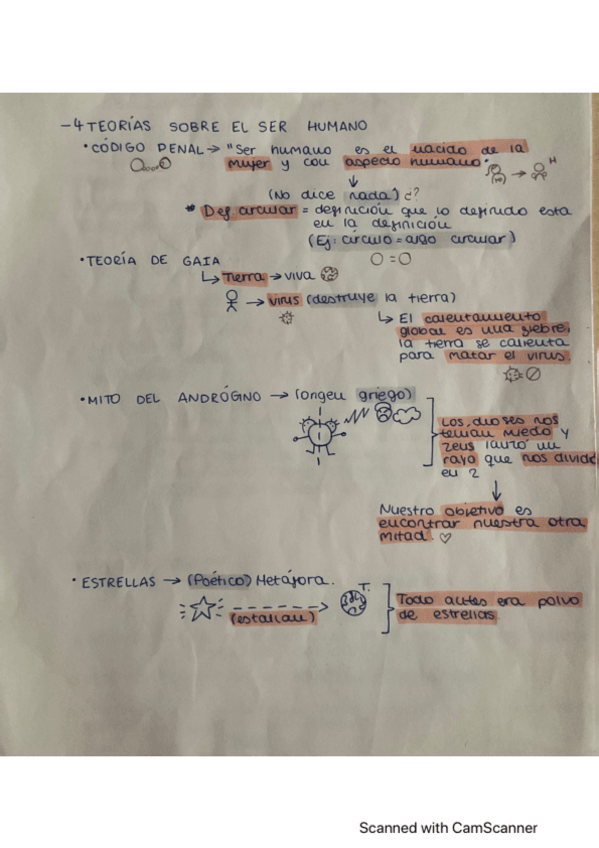 - 4 TEORÍAS SOBRE EL SER HUMANO
• CÓDIGO PENAL → "Ser humano es el nacido de la
mujer y con aspecto humano."
H
↓
(No dice nada) ¿?
* Def. circular = definición que lo definido esta
en la definición
(Ej: círculo = algo circular)
• TEORÍA DE GAIA
O = O
↳ Tierra → viva
→ virus (destruye la tierra)
↳ El calentamiento
global es una fiebre,
la tierra se calienta
para matar el virus.
• MITO DEL ANDRÓGNO → (origen griego)
Los dioses nos
tenian miedo y
Zeus lanzó un
rayo que nos dividió
en 2
↓
Nuestro objetivo es
encontrar nuestra otra
mitad. ♡
• ESTRELLAS → (Poético) Metáfora.
T.
(estallan)
Todo antes era polvo
de estrellas.
Scanned with CamScanner